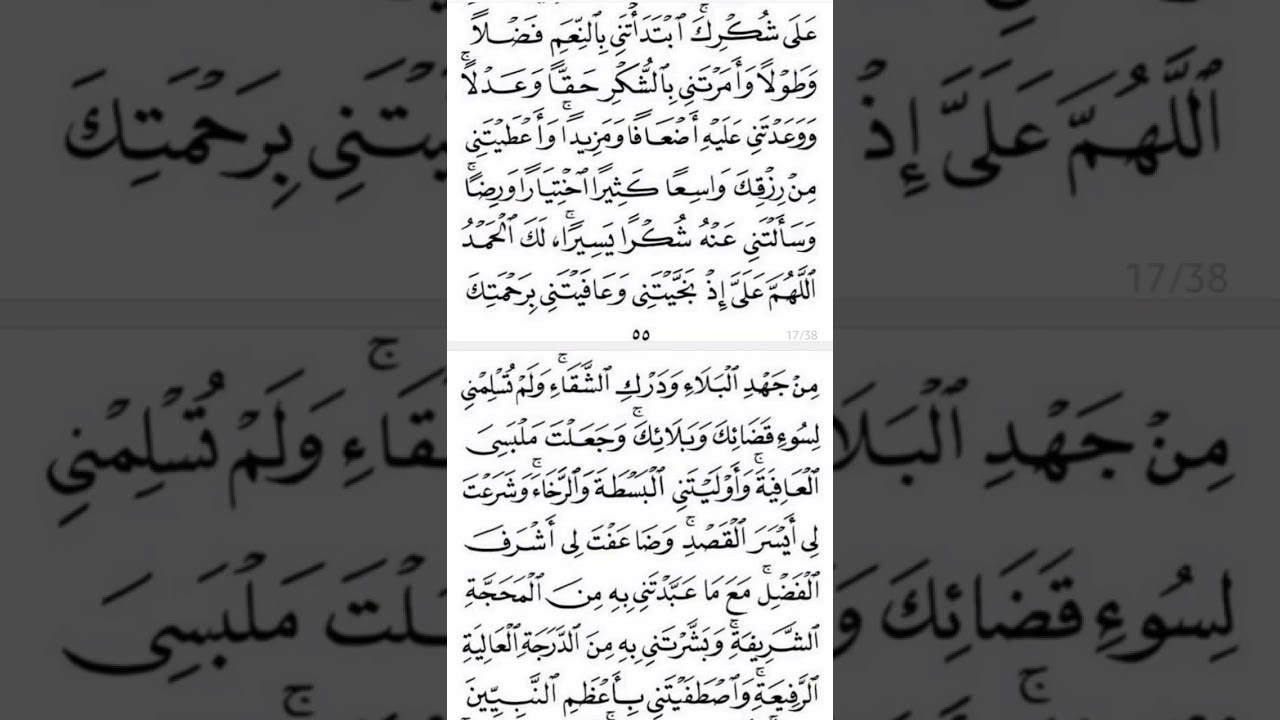 عَلَى شُكْرِكَۚ ٱبْتَدَأْتَنِي بِٱلنِّعَمِ فَضْلاً
وَطَوْلاً وَأَمَرْتَنِي بِٱلشُّكْرِ حَقًّا وَعَدْلاًۚ
وَوَعَدْتَنِي عَلَيْهِ أَضْعَافًا وَمَزِيدًاۚ وَأَعْطَيْتَنِي
مِنْ رِزْقِكَ وَاسِعًا كَثِيرًا ٱخْتِيَارًا وَرِضًاۚ
وَسَأَلْتَنِي عَنْهُ شُكْرًا يَسِيرًاۚ، لَكَ ٱلْحَمْدُ
ٱللَّهُمَّ عَلَىَّ إِذْ نَجَّيْتَنِي وَعَافَيْتَنِي بِرَحْمَتِكَ
٥٥
17/38
مِنْ جَهْدِ ٱلْبَلَاءِ وَدَرْكِ ٱلشَّقَاءِۚ وَلَمْ تُسْلِمْنِي
لِسُوءِ قَضَائِكَ وَبَلَائِكَۚ وَجَعَلْتَ مَلْبَسِى
ٱلْعَافِيَةَۚ وَأَوْلَيْتَنِي ٱلْبَسْطَةَ وَٱلرَّخَاءَۚ وَشَرَعْتَ
لِى أَيْسَرَ ٱلْقَصْدِۚ وَضَاعَفْتَ لِى أَشْرَفَ
ٱلْفَضْلِۚ مَعَ مَا عَبَّدْتَنِي بِهِ مِنَ ٱلْمَحَجَّةِ
ٱلشَّرِيفَةِۚ وَبَشَّرْتَنِي بِهِ مِنَ ٱلدَّرَجَةِ ٱلْعَالِيَةِ
ٱلرَّفِيعَةِۚ وَٱصْطَفَيْتَنِي بِأَعْظَمِ ٱلنَّبِيِّينَ